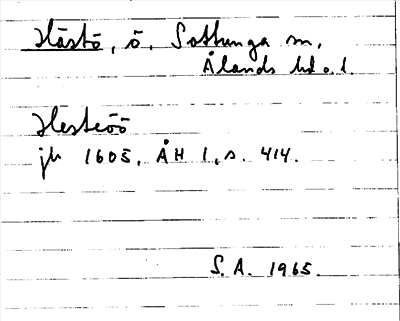 Hästö, ö. Sottunga sn,
Ålands hd o. l.
Hesteöö
jb 1605, ÅH 1, s. 414.
S.A. 1965.